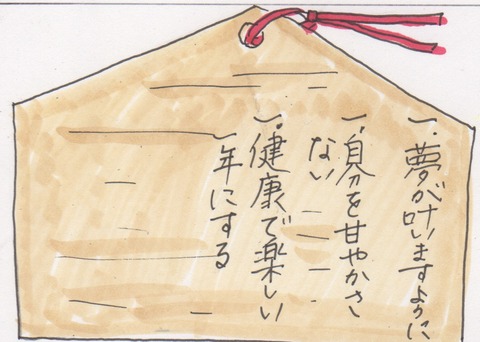 一.夢が叶いますように
一.自分を甘やかさ
ない
一.健康で楽しい
一年にする